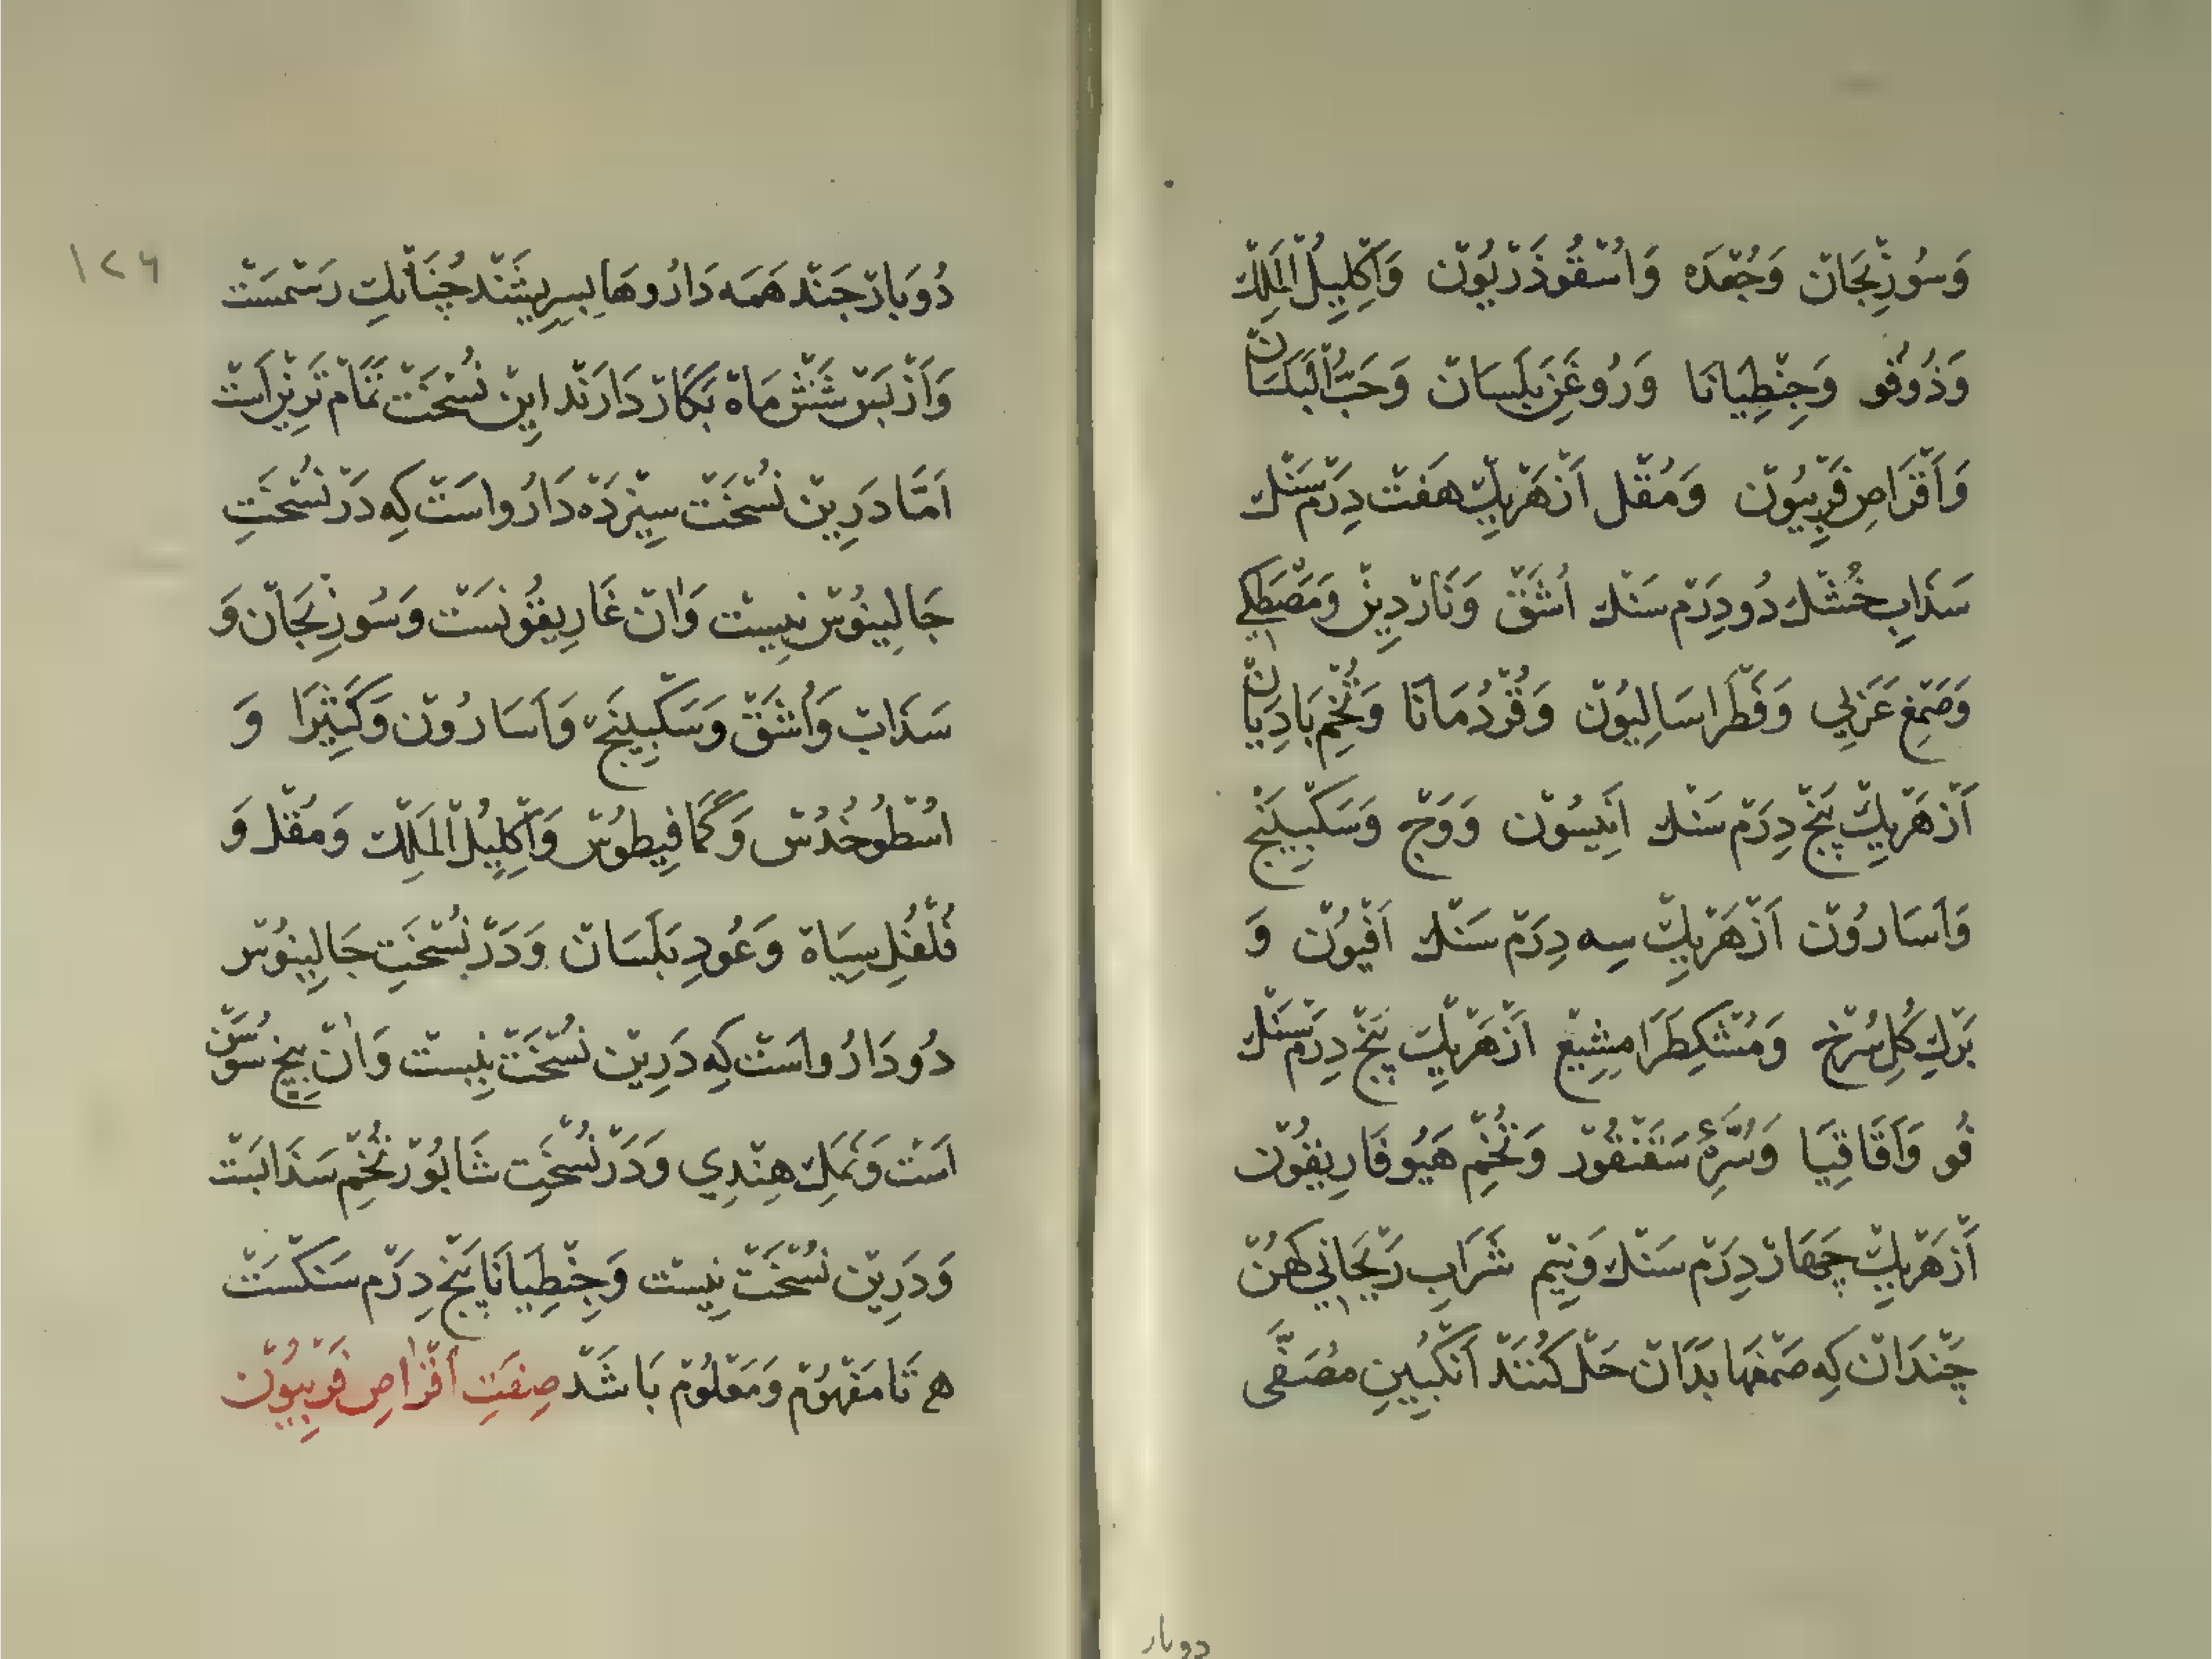 وَسُوْرِنْجَانْ وَجُعْدَه وَاُسْقُوذَرْيُوْنْ وَاَكْلِيِلُ الْمَلِكْ
وَدُوقُو وَجِنْطِيانَا وَرُوغَنِ بَلَسَانْ وَحَبُّ الْبَلَسَانْ
وَاَقْرَاصِ فَرْبِيُوْنْ وَمُقْلْ اَزْهَرْيِكْ هَفْتْ دِرَمْ سَنْكْ
سَدَابِ خُشْكْ دُو دِرَمْ سَنْكْ اُشَقْ وَنَارْدِيِنْ وَمَصْطَكِي
وَصَمْغِ عَرَبِي وَفَطْرَاسَالِيُوْنْ وَقُرْدُمَانَا وَتُخْمِ بَادِيَانْ
اَزْهَرْيِكْ پَنْجْ دِرَمْ سَنْكْ اَنِيسُوْنْ وَوَجْ وَسَكْبِيِنَجْ
وَاَسَارُوْنْ اَزْهَرْيِكْ سِه دِرَمْ سَنْكْ اَفْيُوْنْ وَ
بَرْكِ كُلِ سُرْخْ وَمُشْكِطَرَامِشِيْعْ اَزْهَرْيِكْ پَنْجْ دِرَمْ سَنْكْ
فُو وَاَقَاقِيَا وَسُرَّۀِ سَقَنْقُوْر وَتُخْمِ هَيُوفَارِيقُوْن
اَزْهَرْيِكْ چَهَارْ دِرَمْ سَنْكْ وَنِيْم شَرَابِ رَيْحَانِي كَهُنْ
چَنْدَانْ كِه صَمْغهَا بَدَانْ حَلْ كُنَنْدْ اَنْكَبِيِنِ مُصَفَّى
دوبار
١٢٦
دُوبَارْ چَنْدِ هَمَه دَارُوهَا بِسِرِيشَنْد چُنَانْكِ رَسْمَسَتْ
وَاَزْ پَسْ شَشْ مَاهْ بَكَارْ دَارَنْد اِيِنْ نُسْخَتْ تَمَامْ تَرِيْن اَسَتْ
اَمَّا دَرِيِنْ نُسْخَتْ سِيْزدَه دَارُواسَتْ كِه دَرْ نُسْخَتِ
جَالِينُوْسْ نِيِسْت وَانْ غَارِيقُوْنَسَتْ وَسُوْرِنْجَانْ وَ
سَدَابْ وَاُشَقْ وَسَكْبِيِنَجْ وَاَسَارُوْنْ وَكَثِيْرَا وَ
اسْطُوخُدُسْ وَكَمَافِيطُوْسْ وَاَكْلِيِلُ الْمَلِكْ وَمُقْلْ وَ
فُلْفُلِ سِيَاهْ وَعُودِ بَلَسَانْ وَدَرْ نُسْخَتِ جَالِينُوْسْ
دُو دَارُواسَتْ كِه دَرِيِنْ نُسْخَتْ نِيِسْت وَانْ بِيِخِ سُوْسَنْ
اَسَتْ وَنَمَكِ هِنْدِي وَدَرْ نُسْخَتِ شَابُوْرْ تُخْمِ سَدَابَسَتْ
وَدَرِيِنْ نُسْخَتْ نِيِسْت وَجِنْطِيَانَا پَنْجْ دِرَمْ سَنْكَسَتْ
هَمِ تَا مَفْهُوْمْ وَمَعْلُوْمْ بَاشَدْ صِفَتِ اَقْرَاصِ فَرْبِيُوْنْ